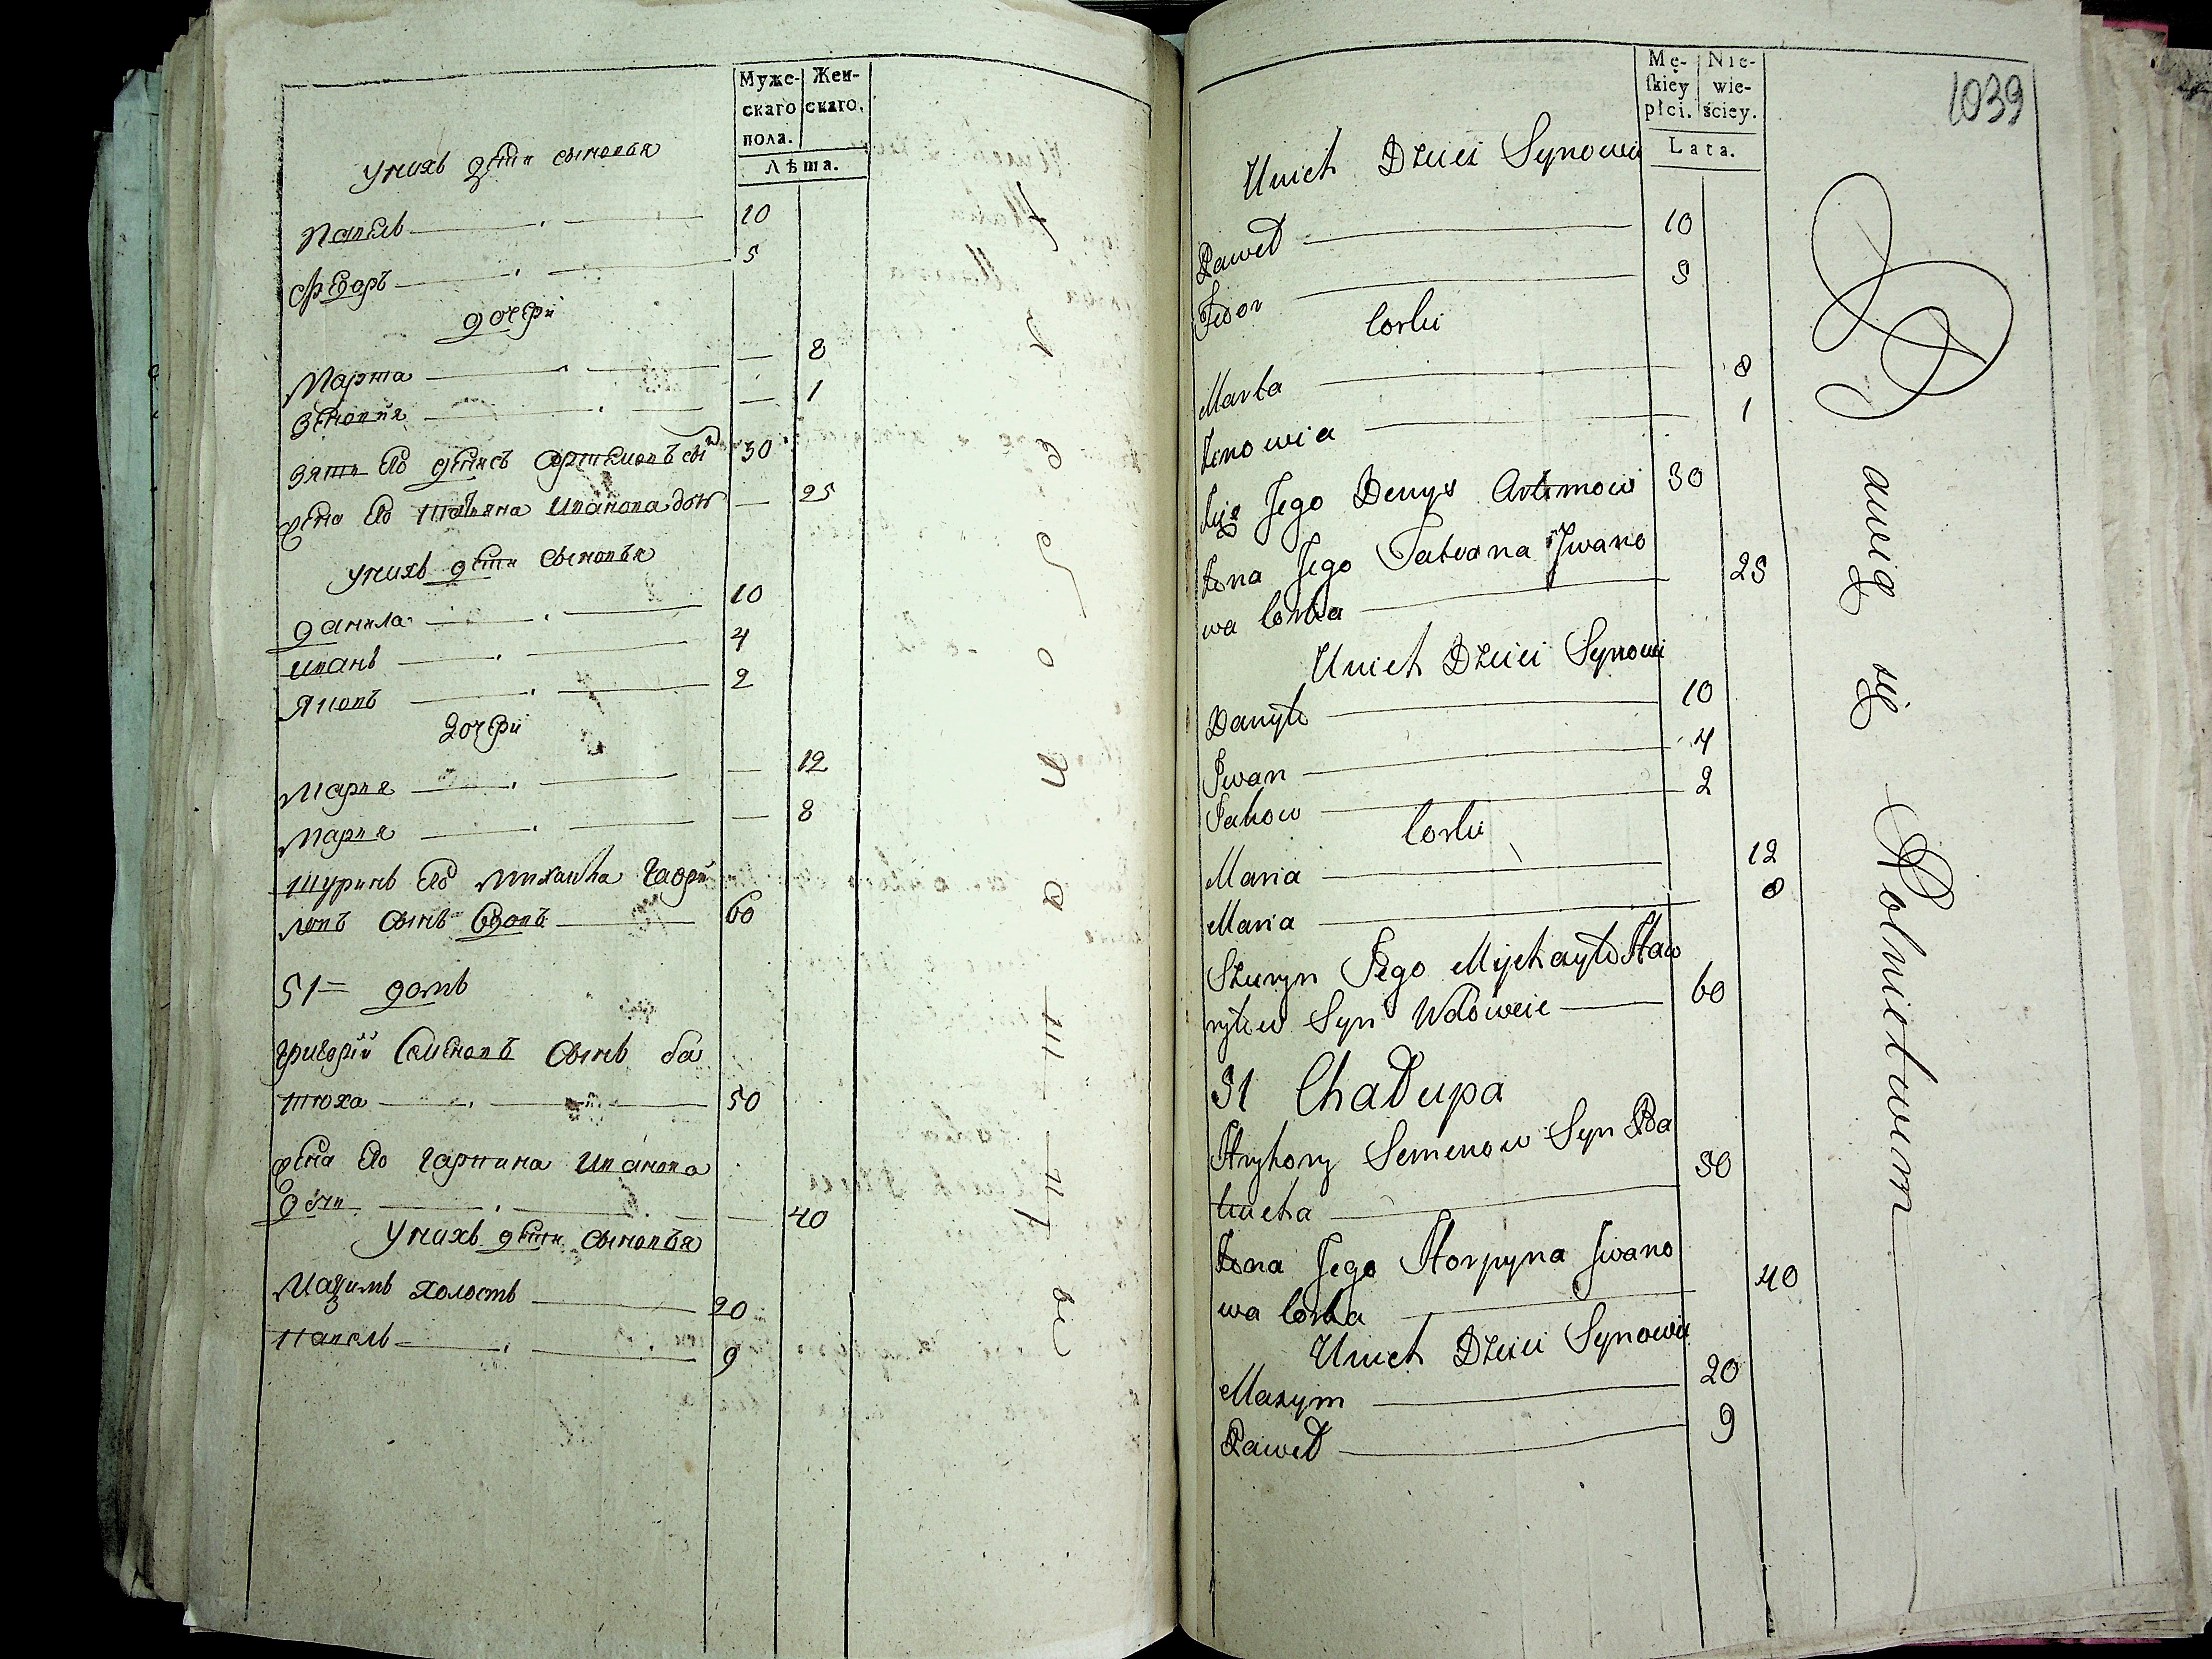 Муже-
скаго
пола.
Жен-
скаго.
Лѣта.
у нихъ дѣти сыновья
Павелъ 10
Федоръ 5
дочери
Марта — 8
Зеновия — 1
зять его денисъ Артемовъ сы 30
жена его татьяна Иванова дочь — 25
у нихъ дети сыновья
данила 10
иванъ 4
Яковъ 2
дочери
Мария — 12
Мария — 8
Шуринъ его михайла Гаври
ловъ сынъ вдовъ 60
51 = домъ
григорий Семеновъ сынъ ба
тюха 50
жена его гарпина Иванова
дочь — 40
у нихъ дети сыновья
Мазимъ холостъ 20
Павелъ 9
Mę-
skiey
płci.
Nie-
wie-
ściey.
Lata.
1039
Unich Dzieci Synowie
Paweł 10
Fedor 5
Corki
Marta 8
Zenowia 1
Zięć Jego Denys Artemow 30
Zona Jego Tatyana Jwano
wa Corka 25
Unich Dzieci Synowie
Danyło 10
Jwan 4
Jakow 2
Corki
Maria 12
Maria 8
Szuryn Jego Mychayło Haw
ryłow Syn Wdowiec 60
51 Chałupa
Hryhory Semenow Syn Ba
tiucha 50
Zona Jego Horpyna Jwano
wa Corka 40
Unich Dzieci Synowie
Maxym 20
Paweł 9
Bawią się Rolnictwem